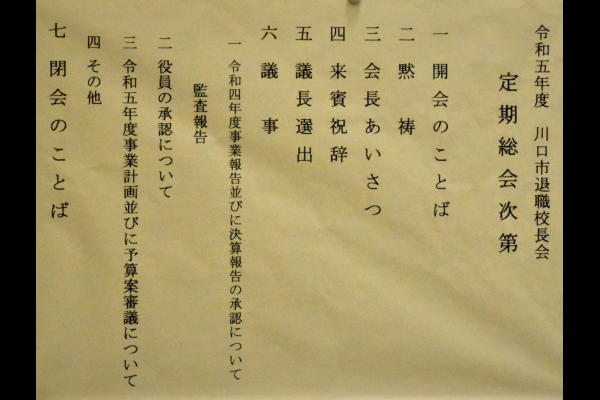 令和五年度 川口市退職校長会
定期総会次第
一 開会のことば
二 黙祷
三 会長あいさつ
四 来賓祝辞
五 議長選出
六 議事
一 令和四年度事業報告並びに決算報告の承認について
監査報告
二 役員の承認について
三 令和五年度事業計画並びに予算案審議について
四 その他
七 閉会のことば